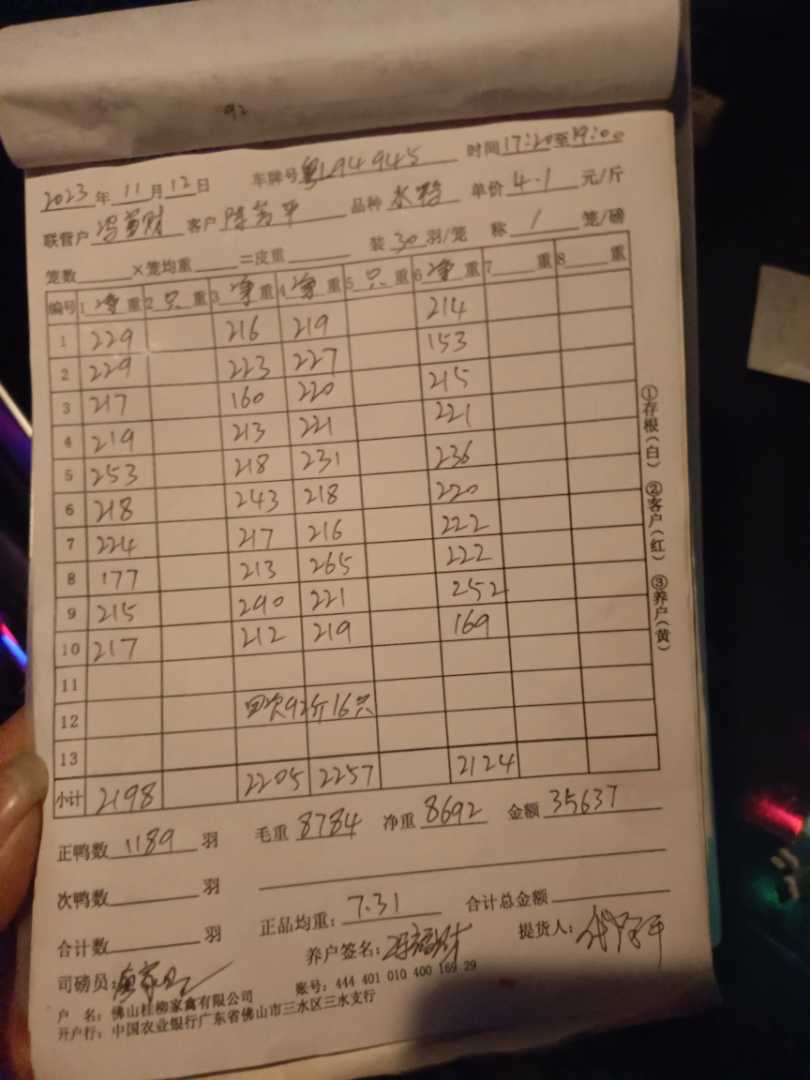 92
2023年11月12日 车牌号粤L94945 时间17:20至19:00
联营户 冯 财 客户 陈 平 品种 水鸭 单价 4.1 元/斤
笼数 ×笼均重 =皮重 装 30 羽/笼 称 1 笼/磅
编号 1 净 重 2 只 重 3 净 重 4 净 重 5 只 重 6 净 重 7 重 8 重
1 229 216 219 214
2 229 223 227 153
3 217 160 220 215
4 219 213 221 221
5 253 218 231 236
6 218 243 218 220
7 224 217 216 222
8 177 213 265 222
9 215 290 221 252
10 217 212 219 169
11
12 回次92斤16只
13
小计 2198 2205 2257 2124
正鸭数 1189 羽 毛重 8784 净重 8692 金额 35637
次鸭数 羽
合计数 羽 正品均重: 7.31 合计总金额
司磅员: 养户签名: 提货人:
户 名: 佛山桂柳家禽有限公司 账号: 444 401 010 400 169 29
开户行: 中国农业银行广东省佛山市三水区三水支行
①存根(白) ②客户(红) ③养户(黄)